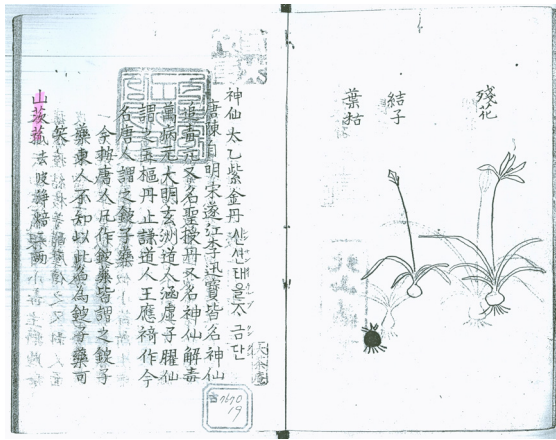 殘花
結子
葉枯
神仙太乙紫金丹 신선태을ᄌᆞ금단
唐陳自明宋遂江李迅寶皆名神仙
追毒元又名聖授丹又名神仙解毒
萬病元大明玄洲道人涵虛子臞仙
謂之玉樞丹止謙道人王應䄎作今
名唐人謂之錠子藥
一余按唐人凡作錠藥皆謂之錠子
藥東人不知以此名爲錠子藥可
笑
山茨菰
古7670
19